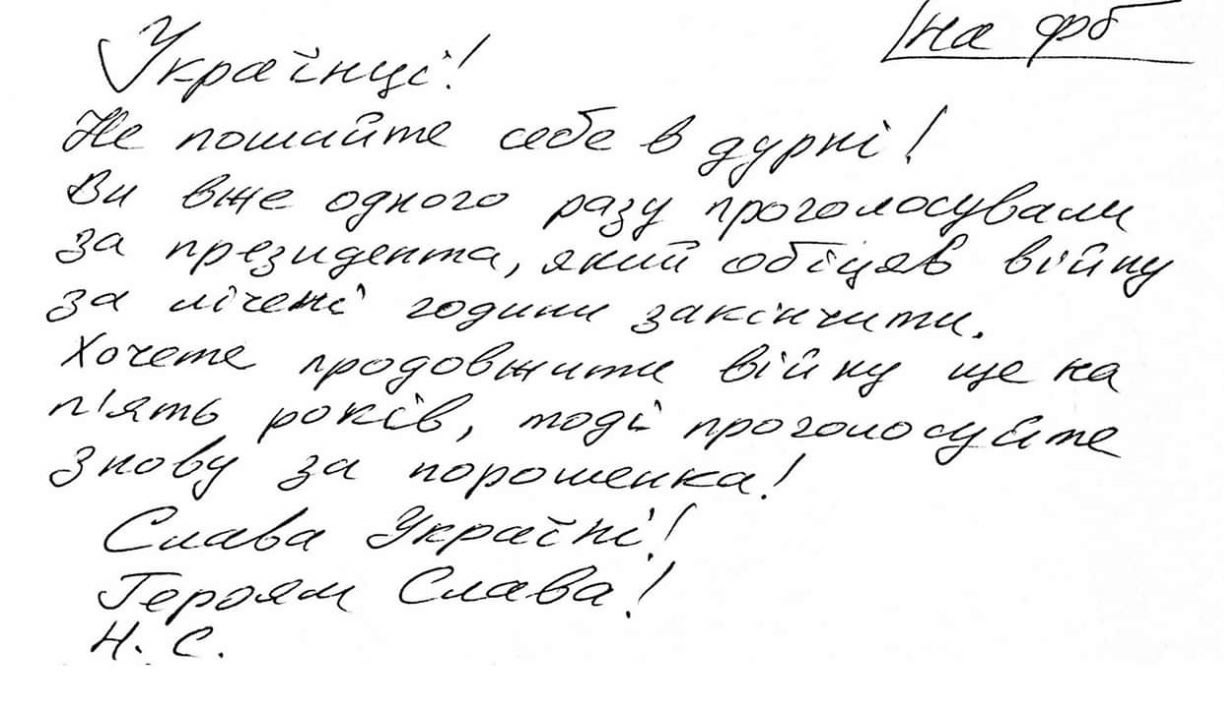 на фб
Українці!
Не пошийте себе в дурні!
Ви вже одного разу проголосували
за президента, який обіцяв війну
за лічені години закінчити.
Хочете продовжити війну ще на
п'ять років, тоді проголосуйте
знову за порошенка!
Слава Україні!
Героям Слава!
Н. С.